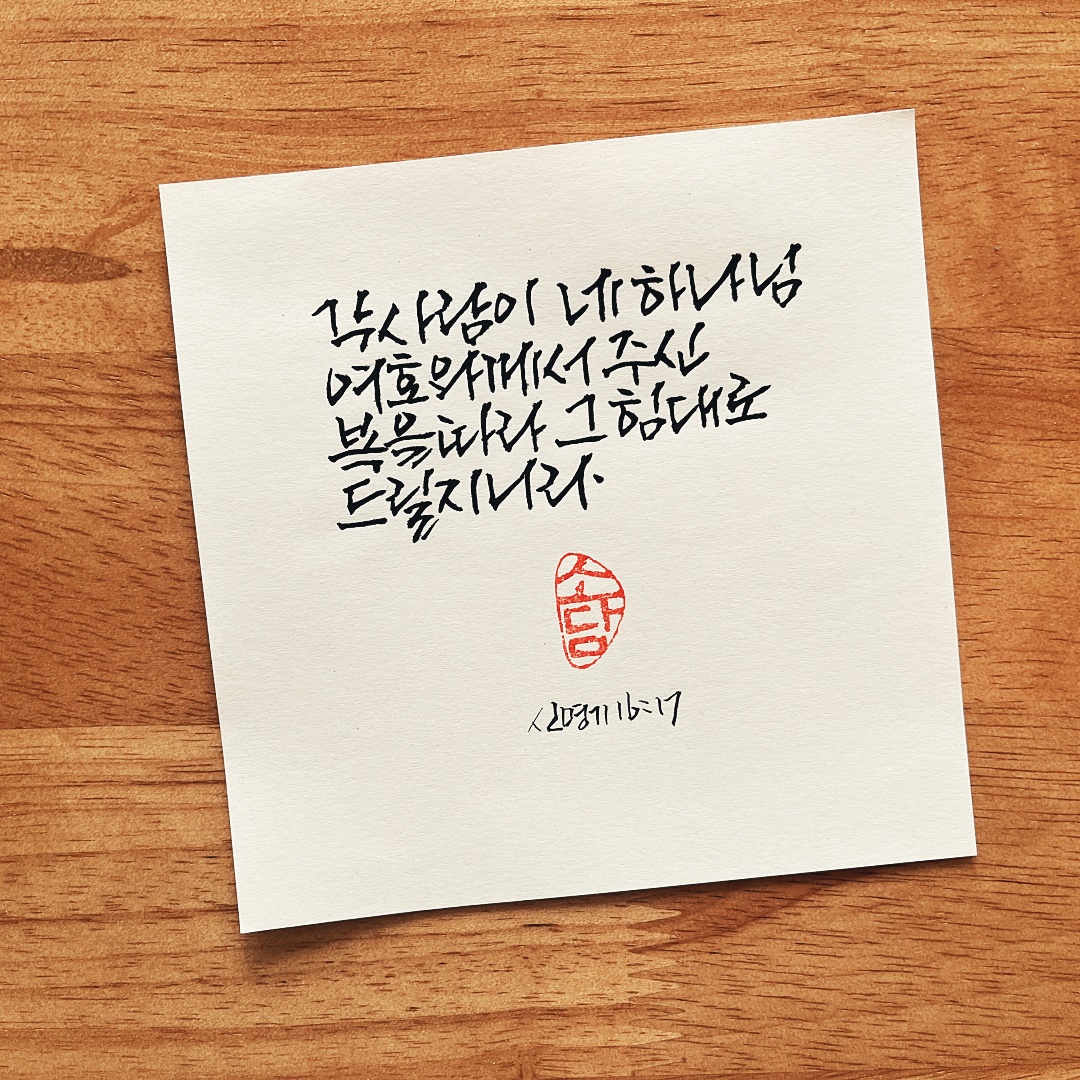 각 사람이 네 하나님
여호와께서 주신
복을 따라 그 힘대로
드릴지니라.
소담
신명기 16:17